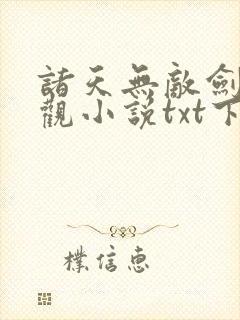 諸天無敵劍
觀小說txt下
樸信惠